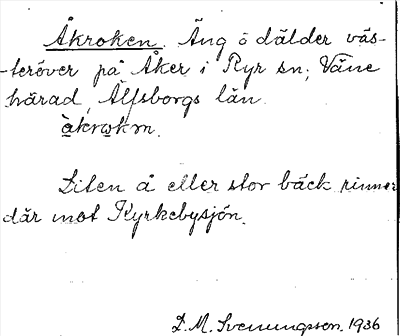 Åkroken. Äng ö dälder väs-
-teröver på Åker i Ryr sn, Väne
härad, Älfsborgs län.
àkrokm.
Liten å eller stor bäck rinner
där mot Kyrkebysjön.
D. M. Svenungsson. 1936